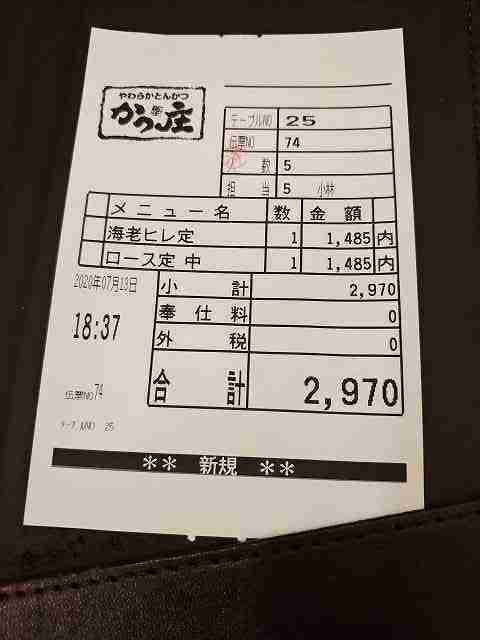 やわらかとんかつ
かつ庄
テーブルNO 25
伝票NO 74
数 5
担当 5 小林
メニュー名 数 金額
海老ヒレ定 1 1,485 内
ロース定 中 1 1,485 内
2020年07月13日
小計 2,970
18:37
奉仕料 0
外税 0
合計 2,970
伝票NO 74
テーブルNO 25
** 新規 **